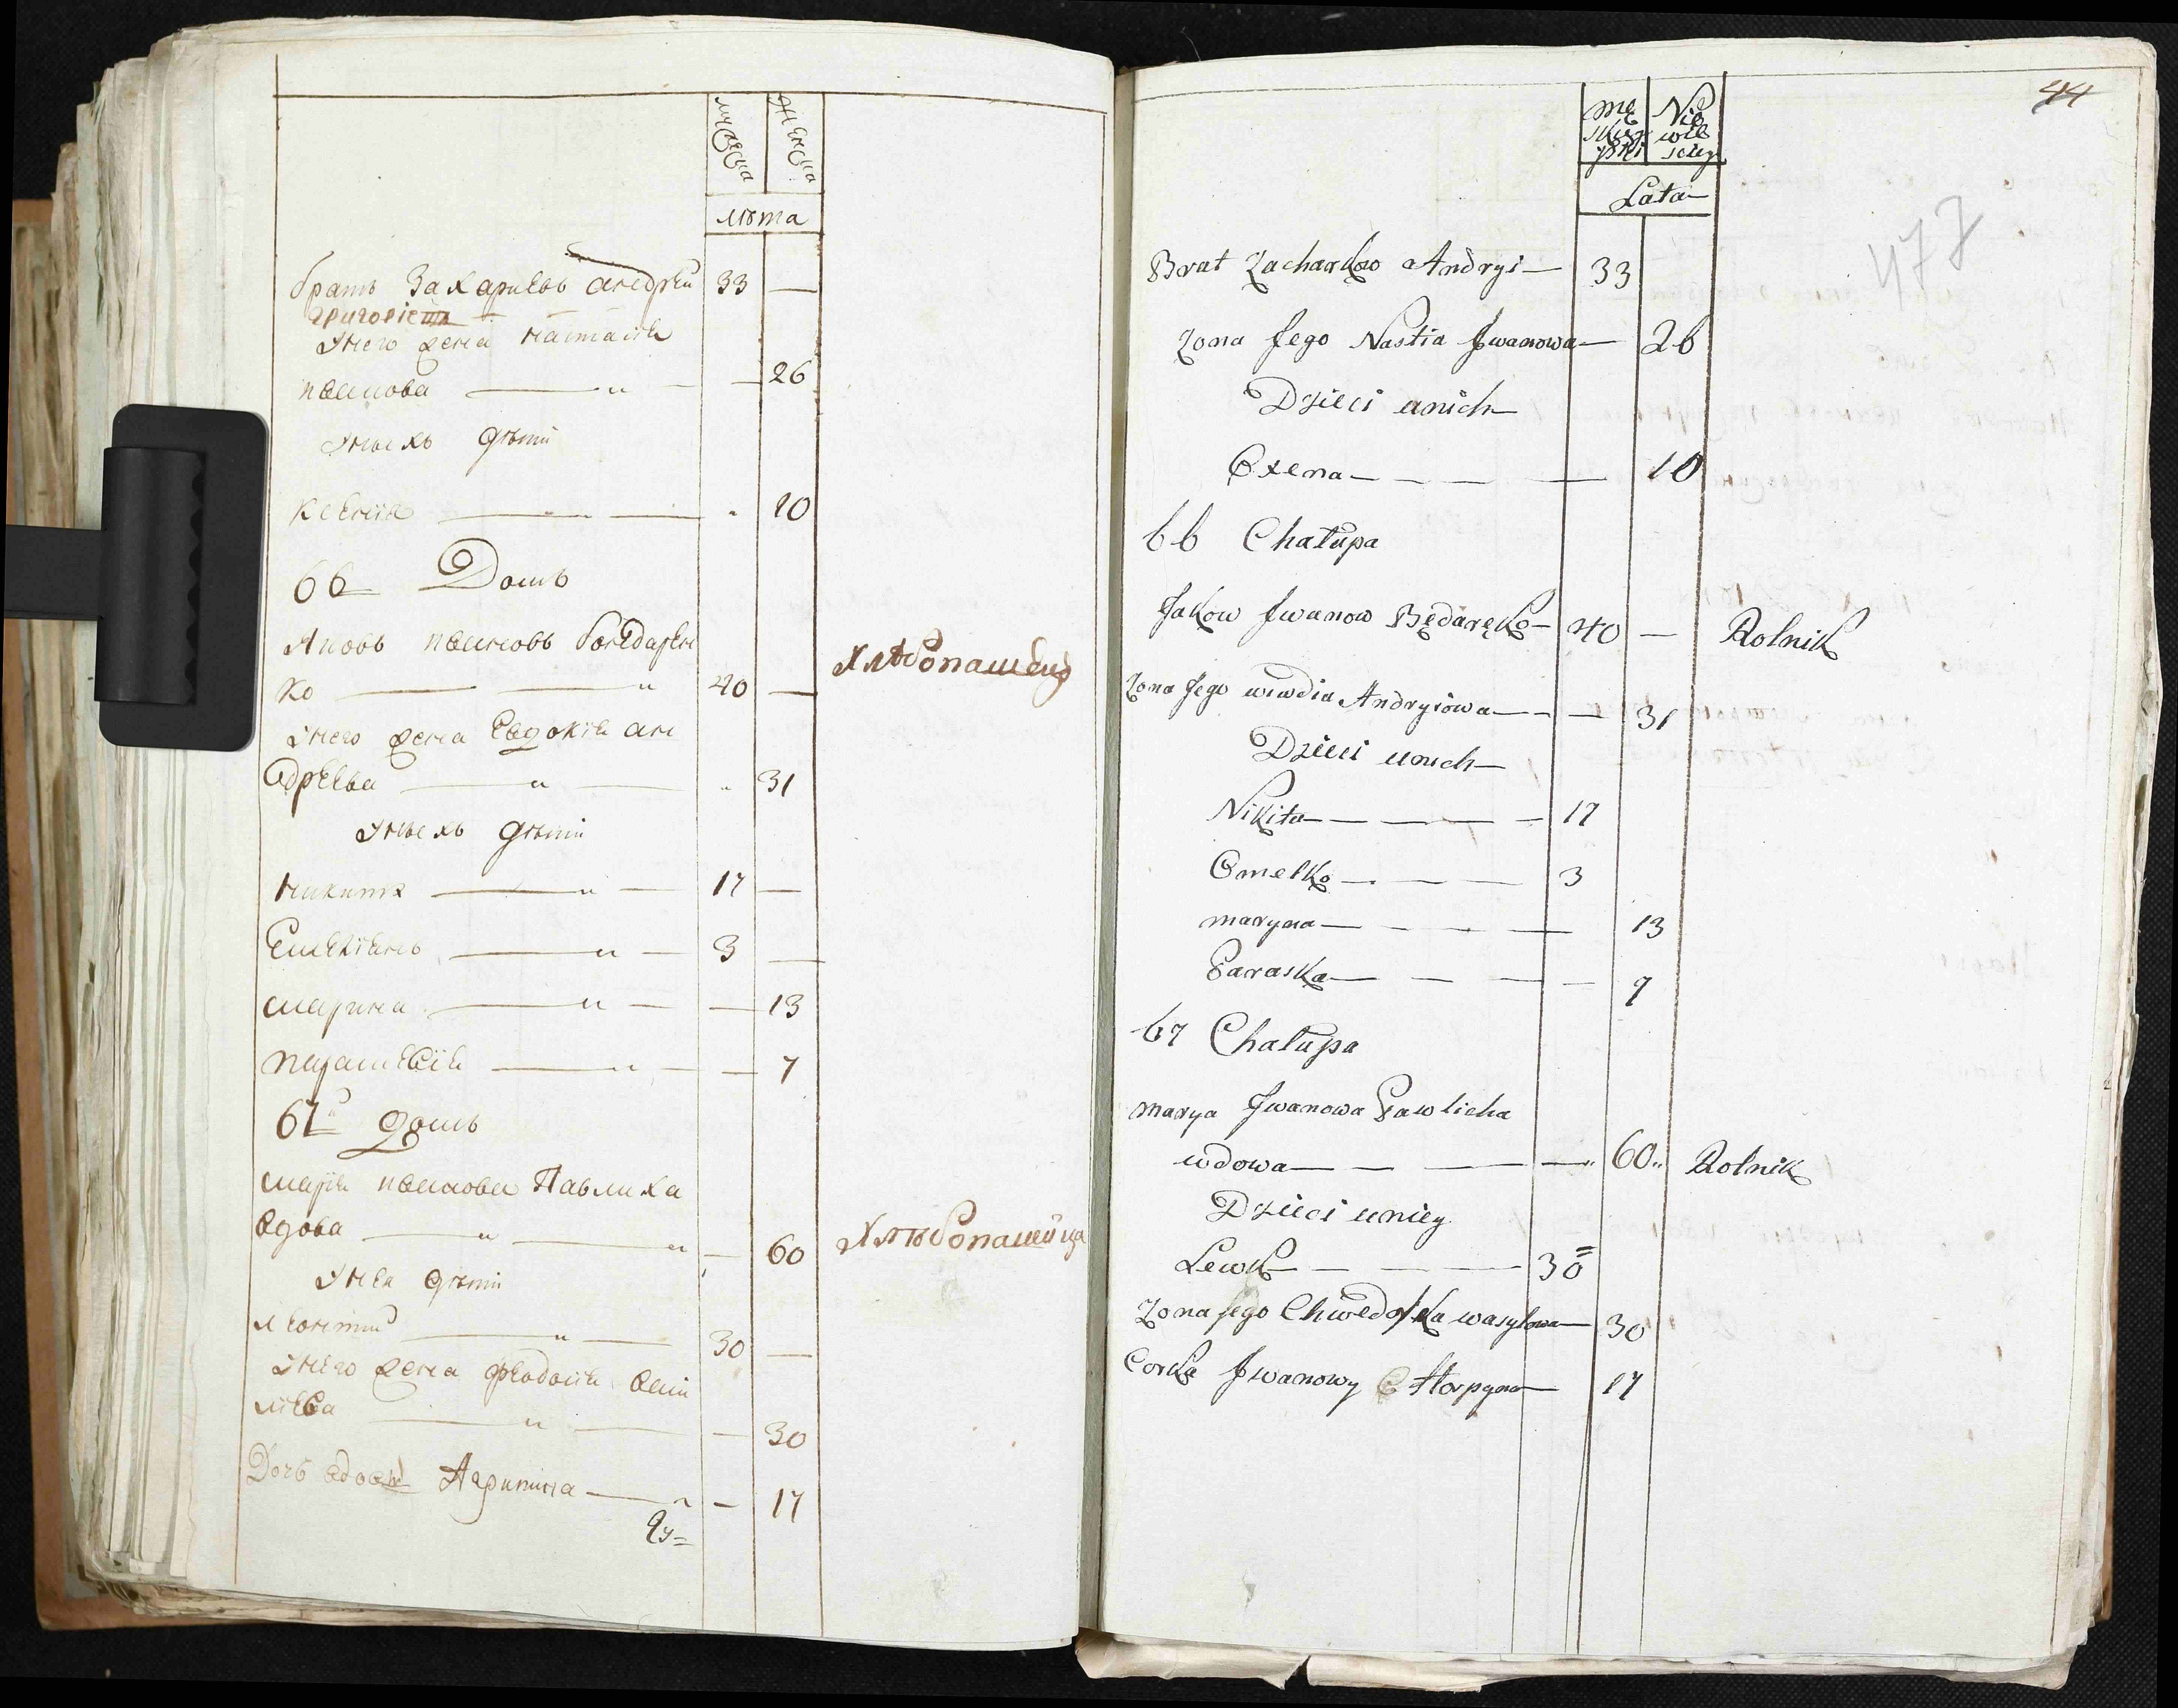 мужеска
женска
лѣта
братъ Захариевъ андрей 33
григориев
унего жена настасия
иванова 26
унихъ дѣти
ксения 10
66 Домъ
Яковъ ивановъ бондарен
ко 40 Хлѣбопашецъ
унего жена Евдокия ан
дреева 31
унихъ дѣти
никита 17
Емелианъ 3
марина 13
парасковия 7
67й домъ
мария иванова Павлиха
вдова 60 Хлѣбопашица
унея дѣти
леонтий 30
унего жена феодосия васи
лиева 30
Дочь вдовы Агрипина 17
44
mę
skiey
płci
Nie
wie
sciey
Lata
477
Brat Zacharkow Andryi 33
Zona Jego Nastia Jwanowa 26
Dzieci unich
Oxena 10
66 Chałupa
Jakow Jwanow Będaręko 40 — Rolnik
Zona Jego wiwdia Andryiowa 31
Dzieci unich
Nikita 17
Omelko 3
maryna 13
Paraska 7
67 Chałupa
marya Jwanowa Pawlicha
wdowa 60 Rolnik
Dzieci uniey
Lewko 30
Zona jego Chwedoska wasylowa 30
Corka Jwanowy Horpyna 17